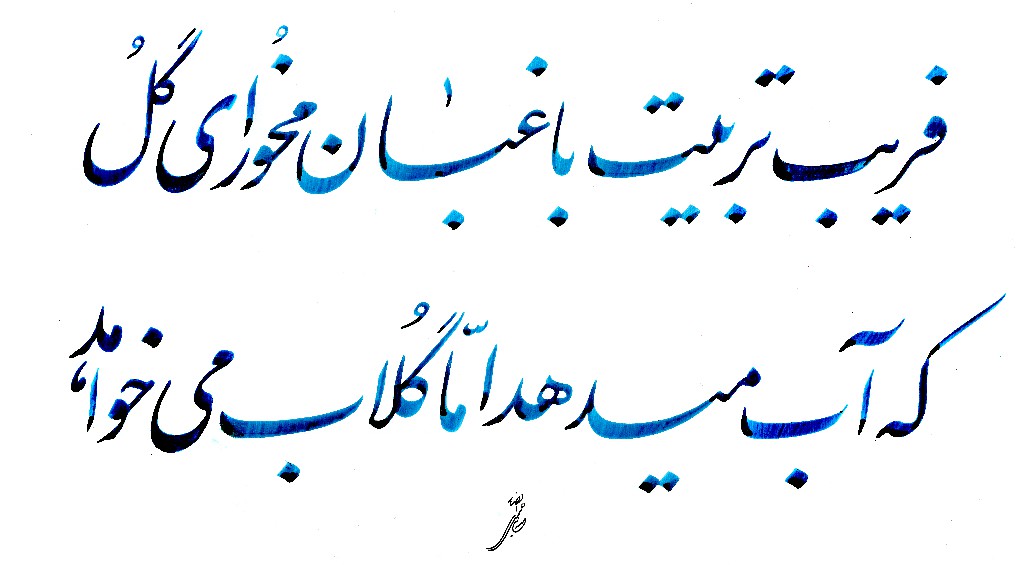 فریب تربیت باغبان مخور ای گُل
که آب میدهد امّا گُلاب می خواهد